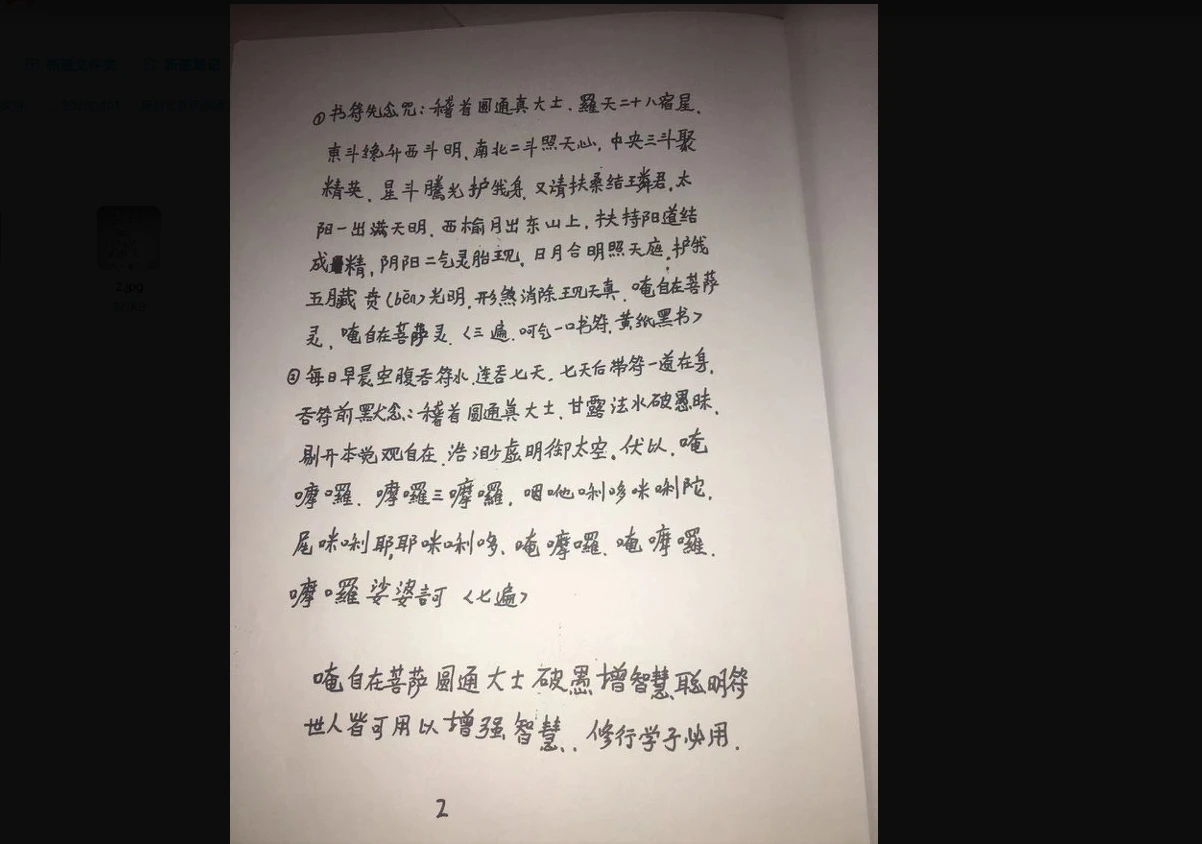 ①书符先念咒:稽首圆通真大士、羅天二十八宿星、
東斗纔升西斗明、南北二斗照天心,中央三斗聚
精英、星斗騰光护我身、又请扶桑结璘君,太
阳一出满天明、西榆月出东山上,扶持阳道结
成精,阴阳二气灵胎现,日月合明照天庭,护我
五月藏贲(bēn)光明,形煞消除现天真、唵自在菩萨
灵、唵自在菩萨灵.〈三遍.呵气一口书符,黄纸黑书〉
②每日早晨空腹吞符水、连吞七天.七天后带符一道在身.
吞符前默念:稽首圆通真大士、甘露法水破愚昧、
剔开本觉观自在、浩渺虚明御太空、伏以、唵
嚤囉、嚤囉三嚤囉、咽吔唎哆咪唎陀、
尾咪唎耶,耶咪唎哆、唵嚤囉、唵嚤囉、
嚤囉娑婆訶〈七遍〉
唵自在菩萨圆通大士破愚增智慧聪明符
世人皆可用以增强智慧..修行学子必用.
2
2.jpg